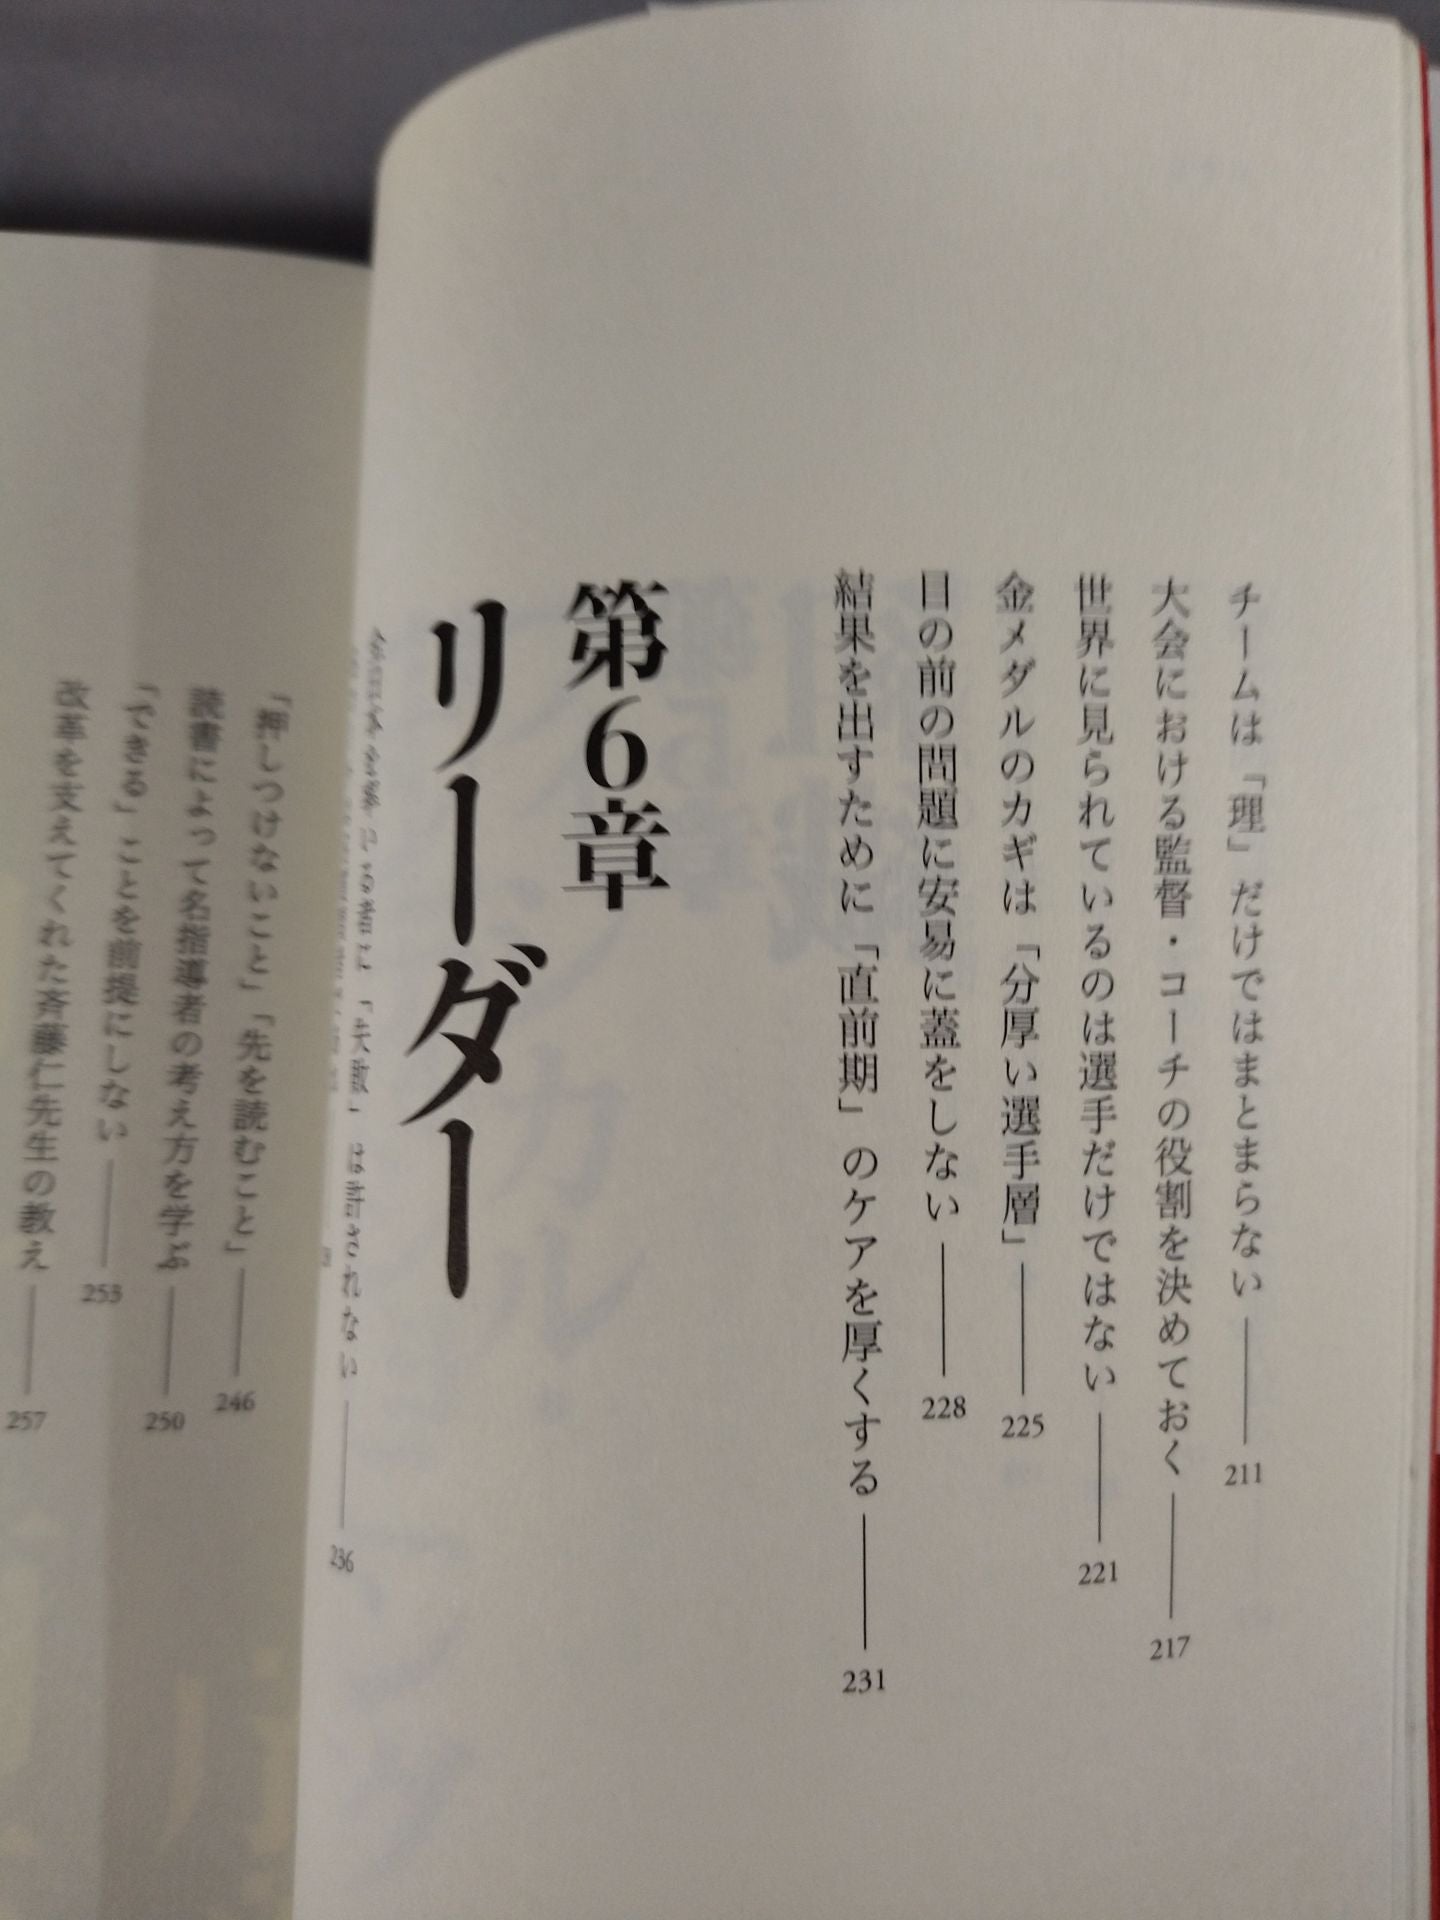 チームは「理」だけではまとまらない ―― 211
大会における監督・コーチの役割を決めておく ―― 217
世界に見られているのは選手だけではない ―― 221
金メダルのカギは「分厚い選手層」 ―― 225
目の前の問題に安易に蓋をしない ―― 228
結果を出すために「直前期」のケアを厚くする ―― 231
第6章
リーダー
は計されない ―― 236
「押しつけないこと」「先を読むこと」 ―― 246
読書によって名指導者の考え方を学ぶ ―― 250
「できる」ことを前提にしない ―― 253
改革を支えてくれた斉藤仁先生の教え ―― 257